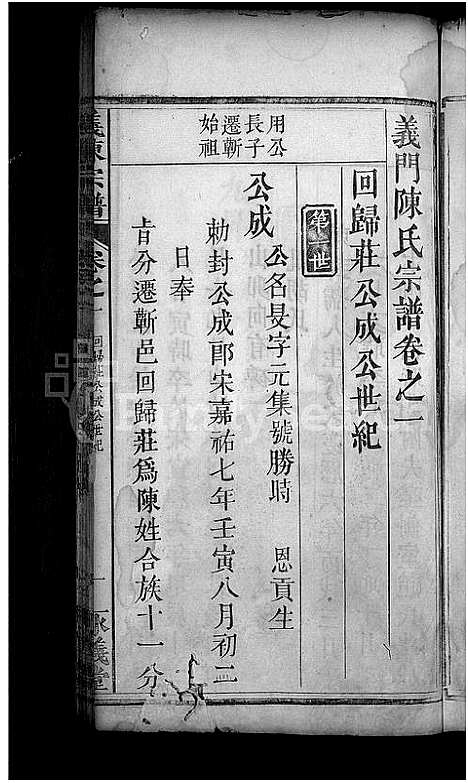 義門陳氏宗譜卷之一
回歸莊公成公世紀
第一世
用公
長子
遷蘄
始祖
公成 公名旻字元集號勝時 恩貢生
勑封公成郎宋嘉祐七年壬寅八月初二
日奉
旨分遷蘄邑回歸莊爲陳姓合族十一分
義陳宗譜
卷之一
回歸莊公成公世紀
一
義堂